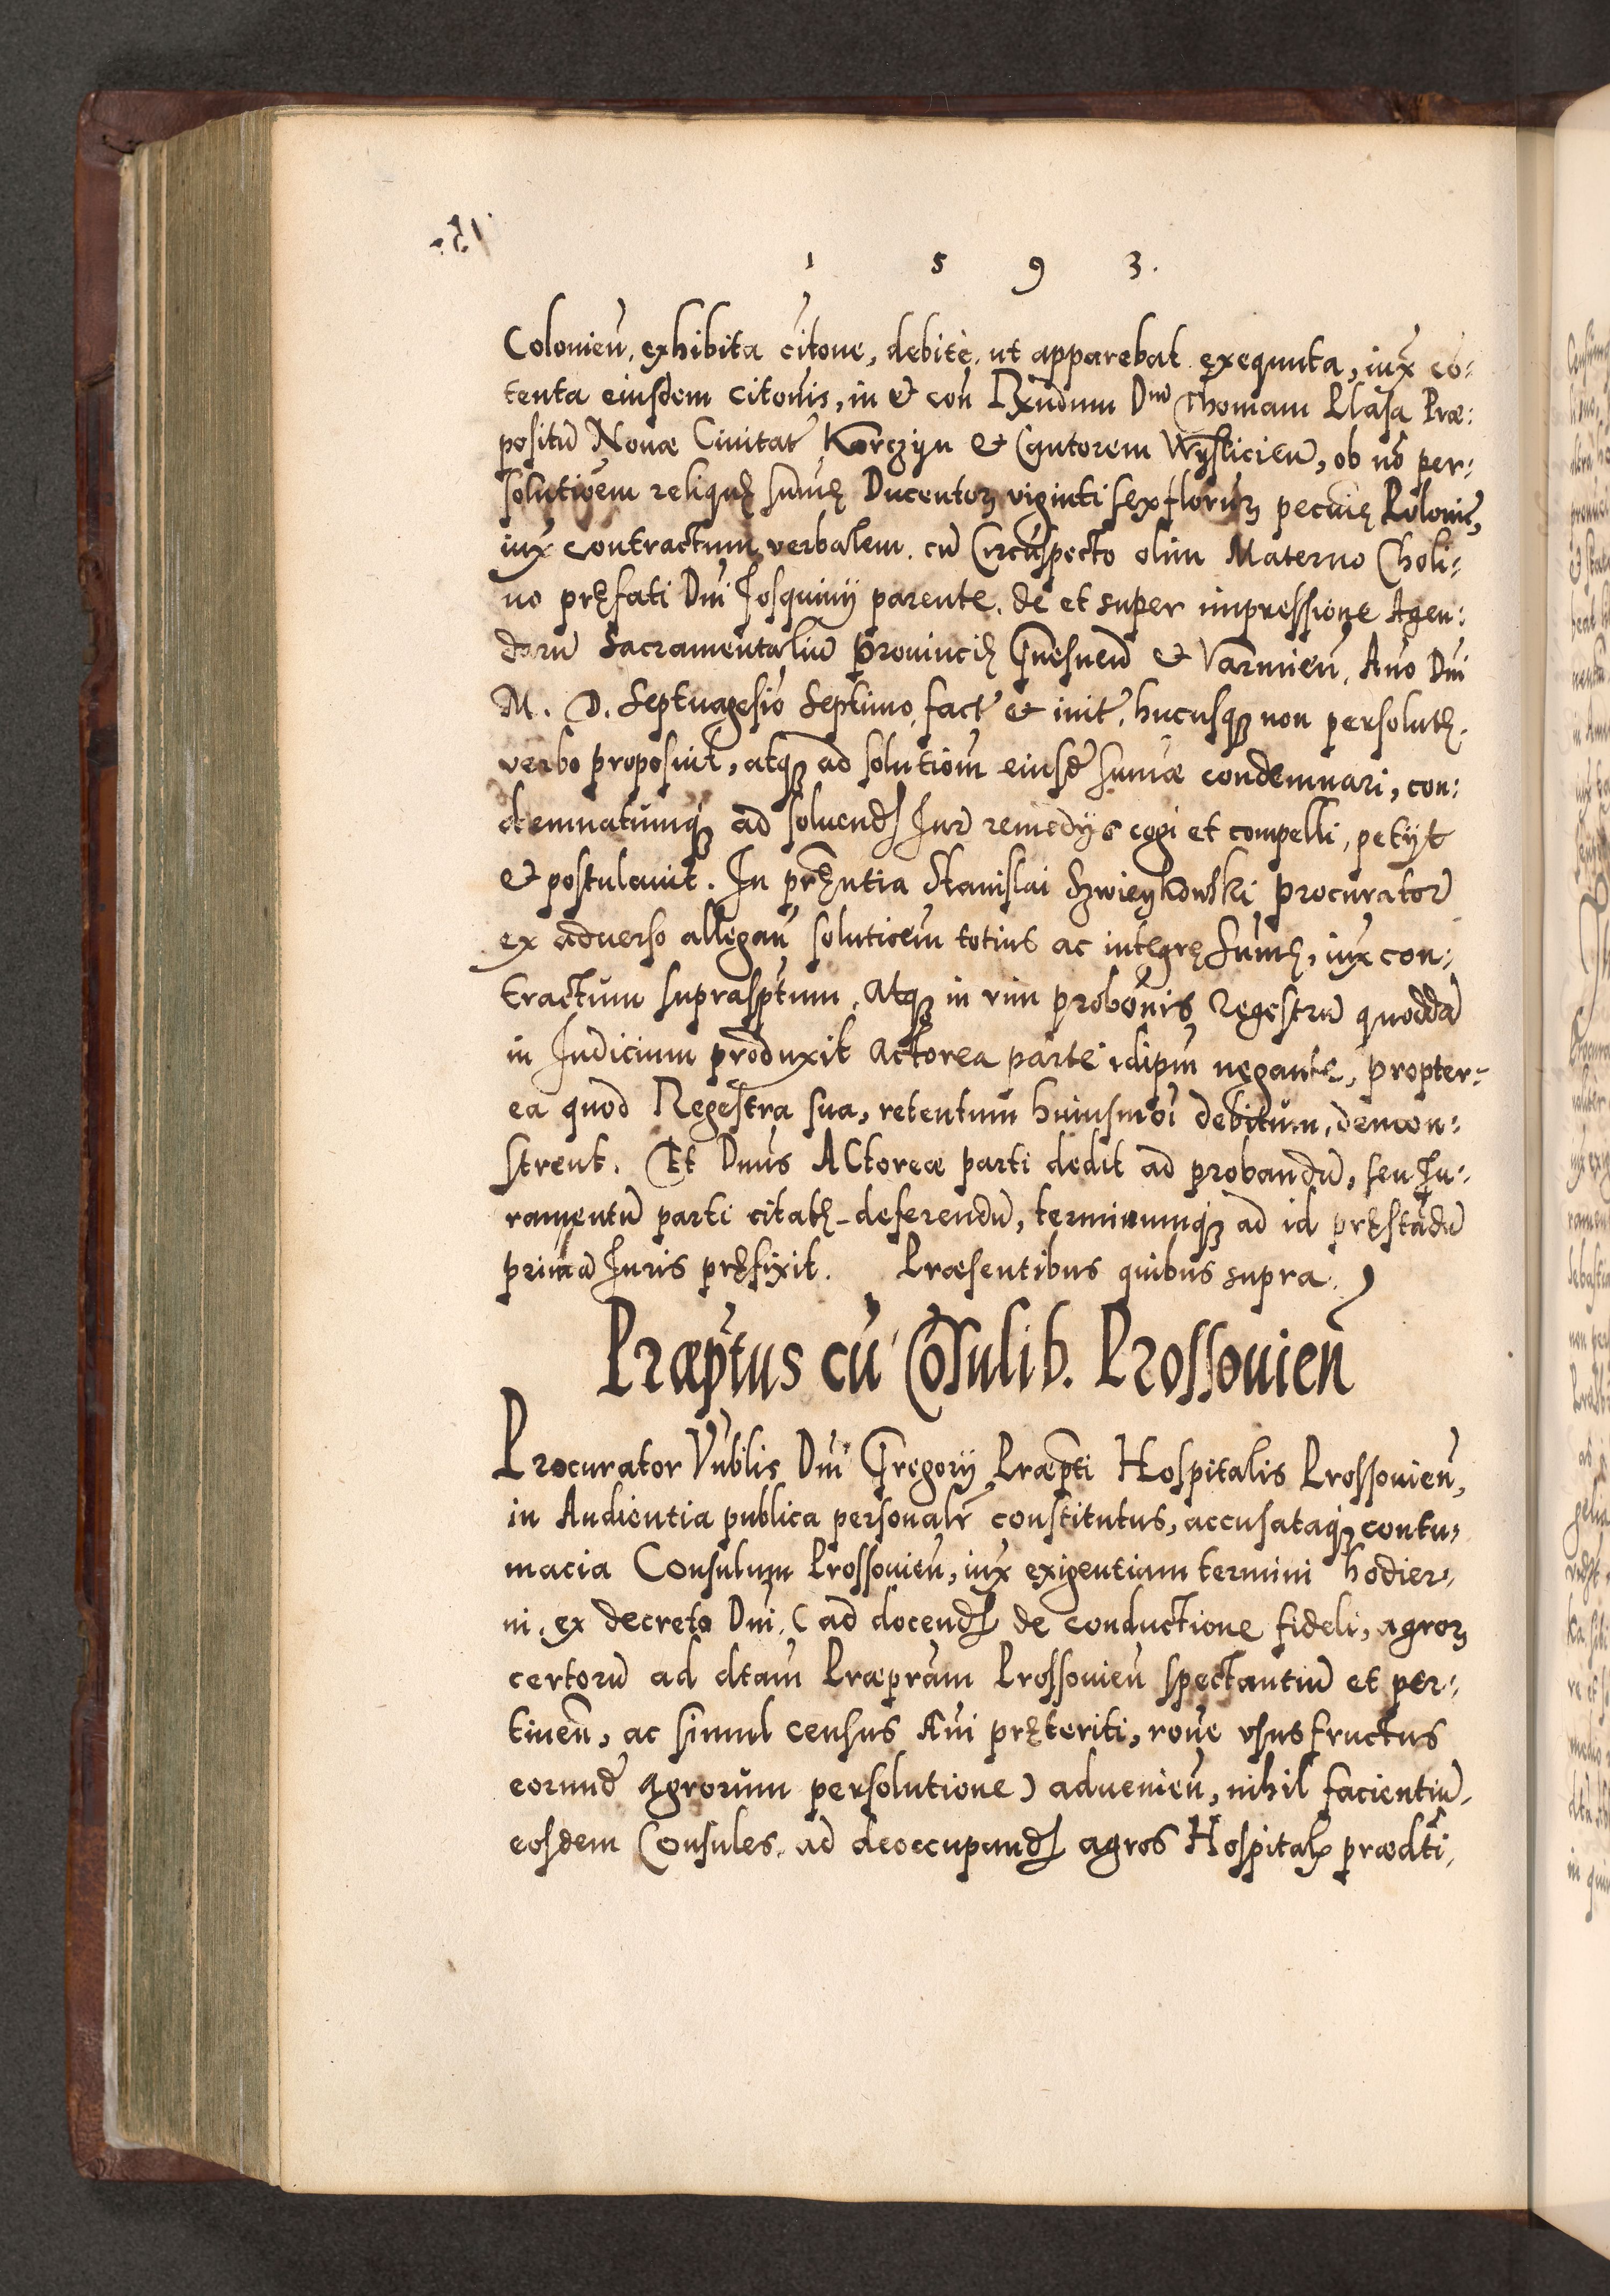 1 5 9 3.
Colonień. exhibita citōne, debitè. ut apparebat exequuta, iux̃ cō:
tenta eiusdem citōnis, in & con̄ Rx̃ndum Dnū Thomam Plasa Præ:
positū Nouæ Ciuitat̃ Korczyn & Cantorem Wyslicień, ob nō per:
solutiōem reliquę sum̄ę Ducentoꝝ viginti sex florēnꝝ pecūię Polonic̃,
iux̃ contractum verbalem. cū Circūspecto olim Materno Choli:
no pręfati Dn̄i Josquinij parente. de et super impressione Agen:
darū Sacramentaliū Prouincię Gnesneń & Varmień, An̄o Dn̄i
M. D. Septuagesīo Septimo. fact̃ & init̃, hucusqꝫ non persolutę.
verbo proposuit, atqꝫ ad solutiōm eiusd̃ sum̄æ condemnari, con:
demnatumqꝫ ad soluendꝭ Jur̃ remedijs cogi et compelli, petijt
& postulauit. In pręn̄tia Stanislai Szwieykowski Procurator̃
ex aduerso allegań solutiōem totius ac integrę sum̄ę, iux̃ con:
tractum suprasp̄tum, atqꝫ in vim probōnis Regestrū quoddā
in Judicium produxit Actorea parte idip̄m negante, propter:
ea quod Regestra sua, retentum huiusmōi debitum, demon:
strent. Et Dn̄us Actoreæ parti dedit ad probandū, seu Ju:
ramentū parti citatę deferendū, terminumqꝫ ad id pręstādū
primā Juris pręfixit. Præsentibus quibus supra.
Præp̄tus cū Cōsulib. Prossouień
Procurator Vn̄blis Dn̄i Gregorij Præp̄ti Hospitalis Prossouień,
in Audientia publica personalr̃ constitutus, accusataqꝫ contu:
macia Consulum Prossouień, iux̃ exigentiam termini hodier:
ni. ex decreto Dn̄i. (ad docendꝭ de conductione fideli, agroꝝ
certorū ad d̄tam Præp̄ram Prossouień spectantiū et per:
tineń, ac simul census An̄i pręteriti, rōne vsusfructus
eorund̃ agrorum persolutione) adueniēn, nihil facientiū.
eosdem Consules. ad deoccupandꝭ agros Hospitalꝭ præd̄ti.